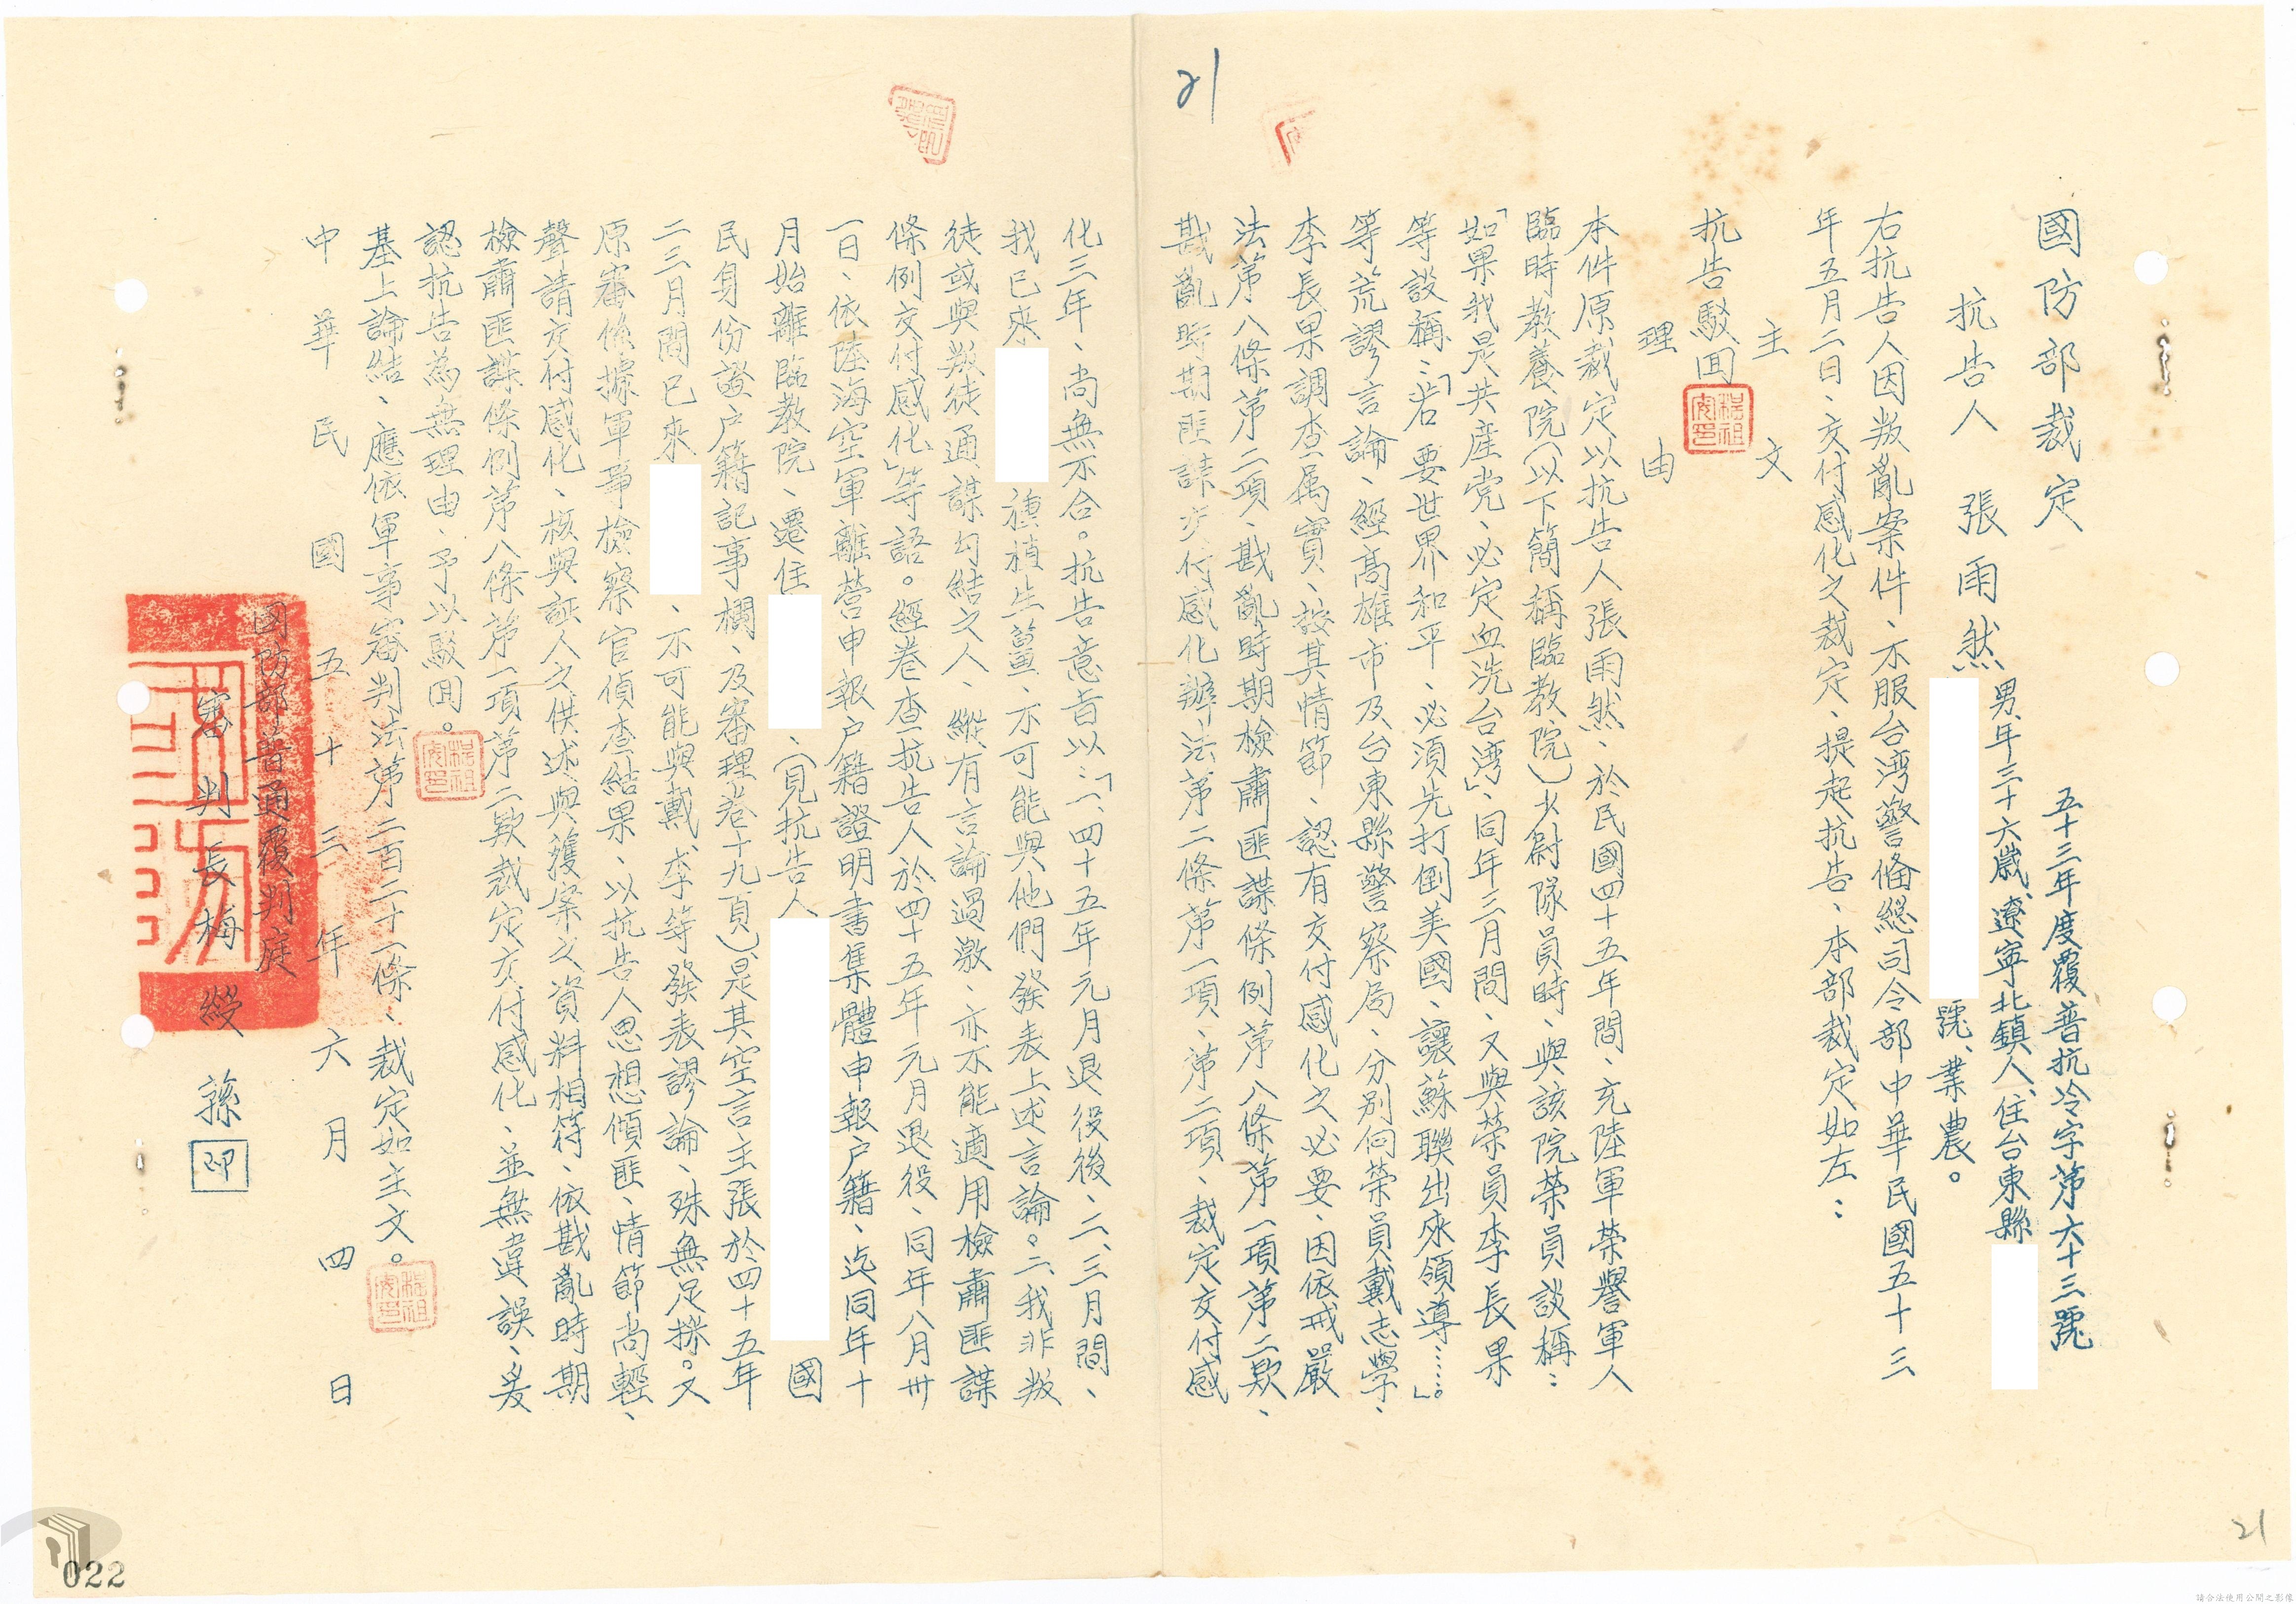 國防部裁定
五十三年度覆普抗冷字第六十三號
抗告人 張雨然 男、年三十六歲、遼寧北鎮人、住台東縣
號、業農。
右抗告人因叛亂案件、不服台湾警备總司令部中華民國五十三
年五月二日、交付感化之裁定、提起抗告、本部裁定如左：
主文
抗告駁回
理由
本件原裁定以抗告人張雨然、於民國四十五年間、充陸軍榮譽軍人
臨時教養院（以下簡稱臨教院）少尉隊員時、與該院榮員談稱：
「如果我是共產党、必定血洗台湾」、同年三月間、又與榮員李長果
等談稱：「若要世界和平、必須先打倒美國、讓蘇聯出來領導……」。
等荒謬言論、經高雄市及台東縣警察局、分別向榮員戴志學、
李長果調查属實、按其情節、認有交付感化之必要、因依戒嚴
法第八條第二項、戡亂時期檢肅匪諜條例第八條第一項第二款、
戡亂時期匪諜交付感化辦法第二條第一項、第二項、裁定交付感
化三年、尚無不合。抗告意旨以：「一、四十五年元月退役後、二、三月間、
我已來 種植生薑、不可能與他們發表上述言論。二、我非叛
徒或與叛徒通謀勾結之人、縱有言論過激、亦不能適用檢肅匪諜
條例交付感化」等語。經卷查抗告人於四十五年元月退役、同年八月卅
一日、依陸海空軍離營申報户籍證明書集體申報户籍、迄同年十
月始離臨教院、遷住 、（見抗告人 國
民身份證户籍記事欄、及審理卷十九頁）是其空言主張於四十五年
二三月間已來 、不可能與戴、李等發表謬論、殊無足採。又
原審係據軍事檢察官偵查結果、以抗告人思想傾匪、情節尚輕、
聲請交付感化、核與証人之供述與獲案之資料相符、依戡亂時期
檢肅匪諜條例第八條第一項第二款裁定交付感化、並無違誤、爰
認抗告為無理由、予以駁回。
基上論結、應依軍事審判法第二百二十一條、裁定如主文。
中華民國五十三年六月四日
國防部普通覆判庭
審判長梅綬蓀 印
21
21
022
請合法使用公開之影像